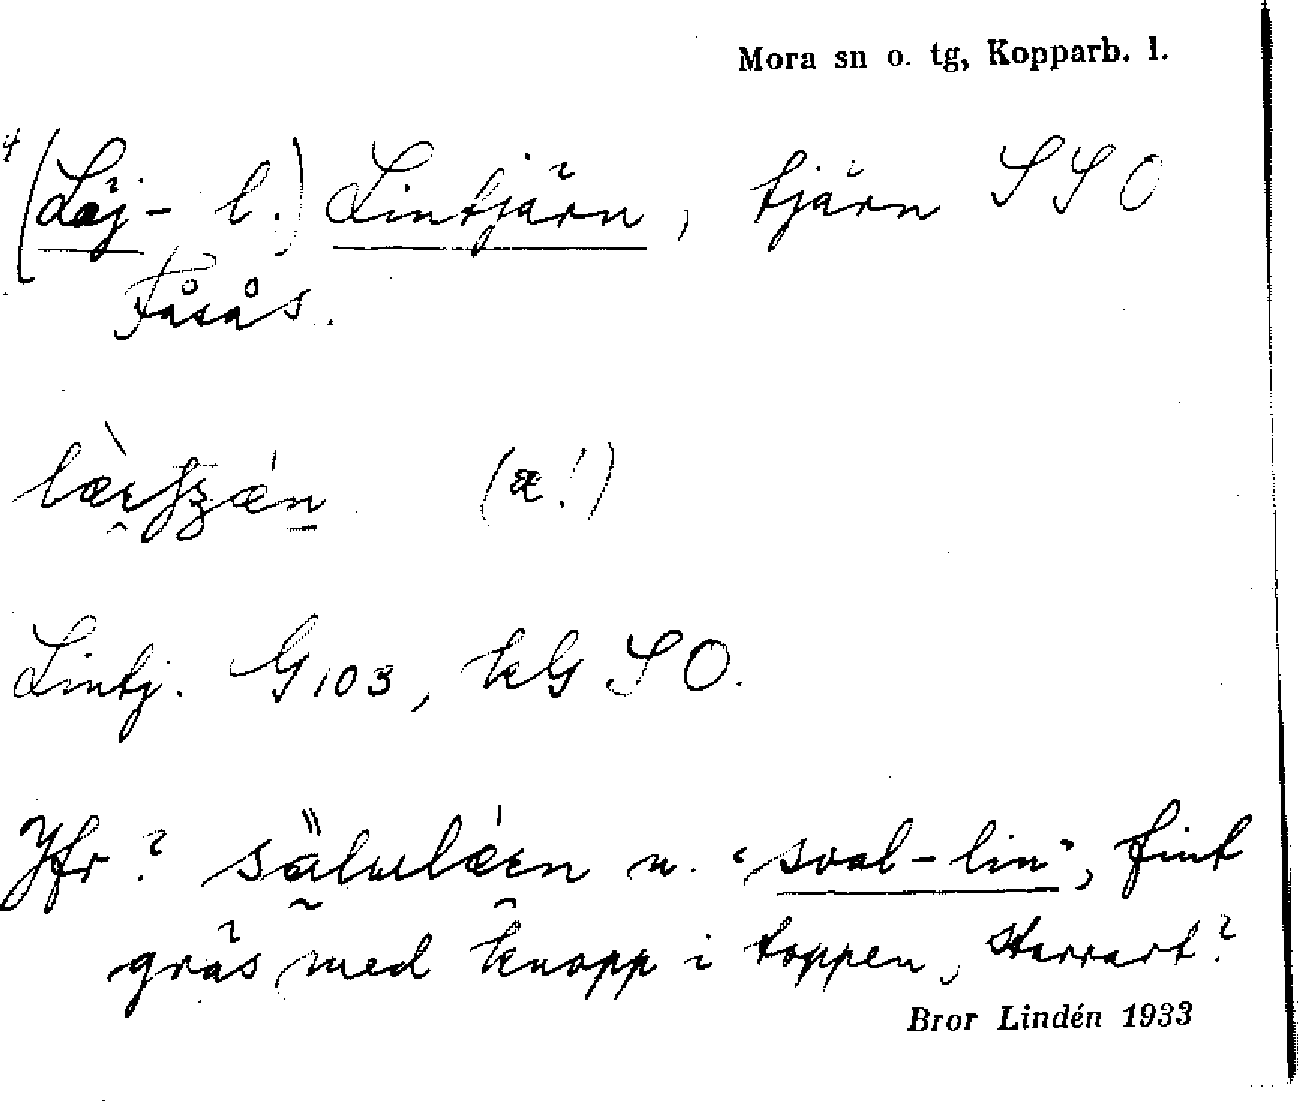 Mora sn o. tg, Kopparb. l.
(Läj- l.) Lintjärn, tjärn SSO
Fåsås.
(æ!)
Lintj. G103, kG SO.
Jfr? n. "sval-lin", fint
gräs med knopp i toppen, starrart?
Bror Lindén 1933